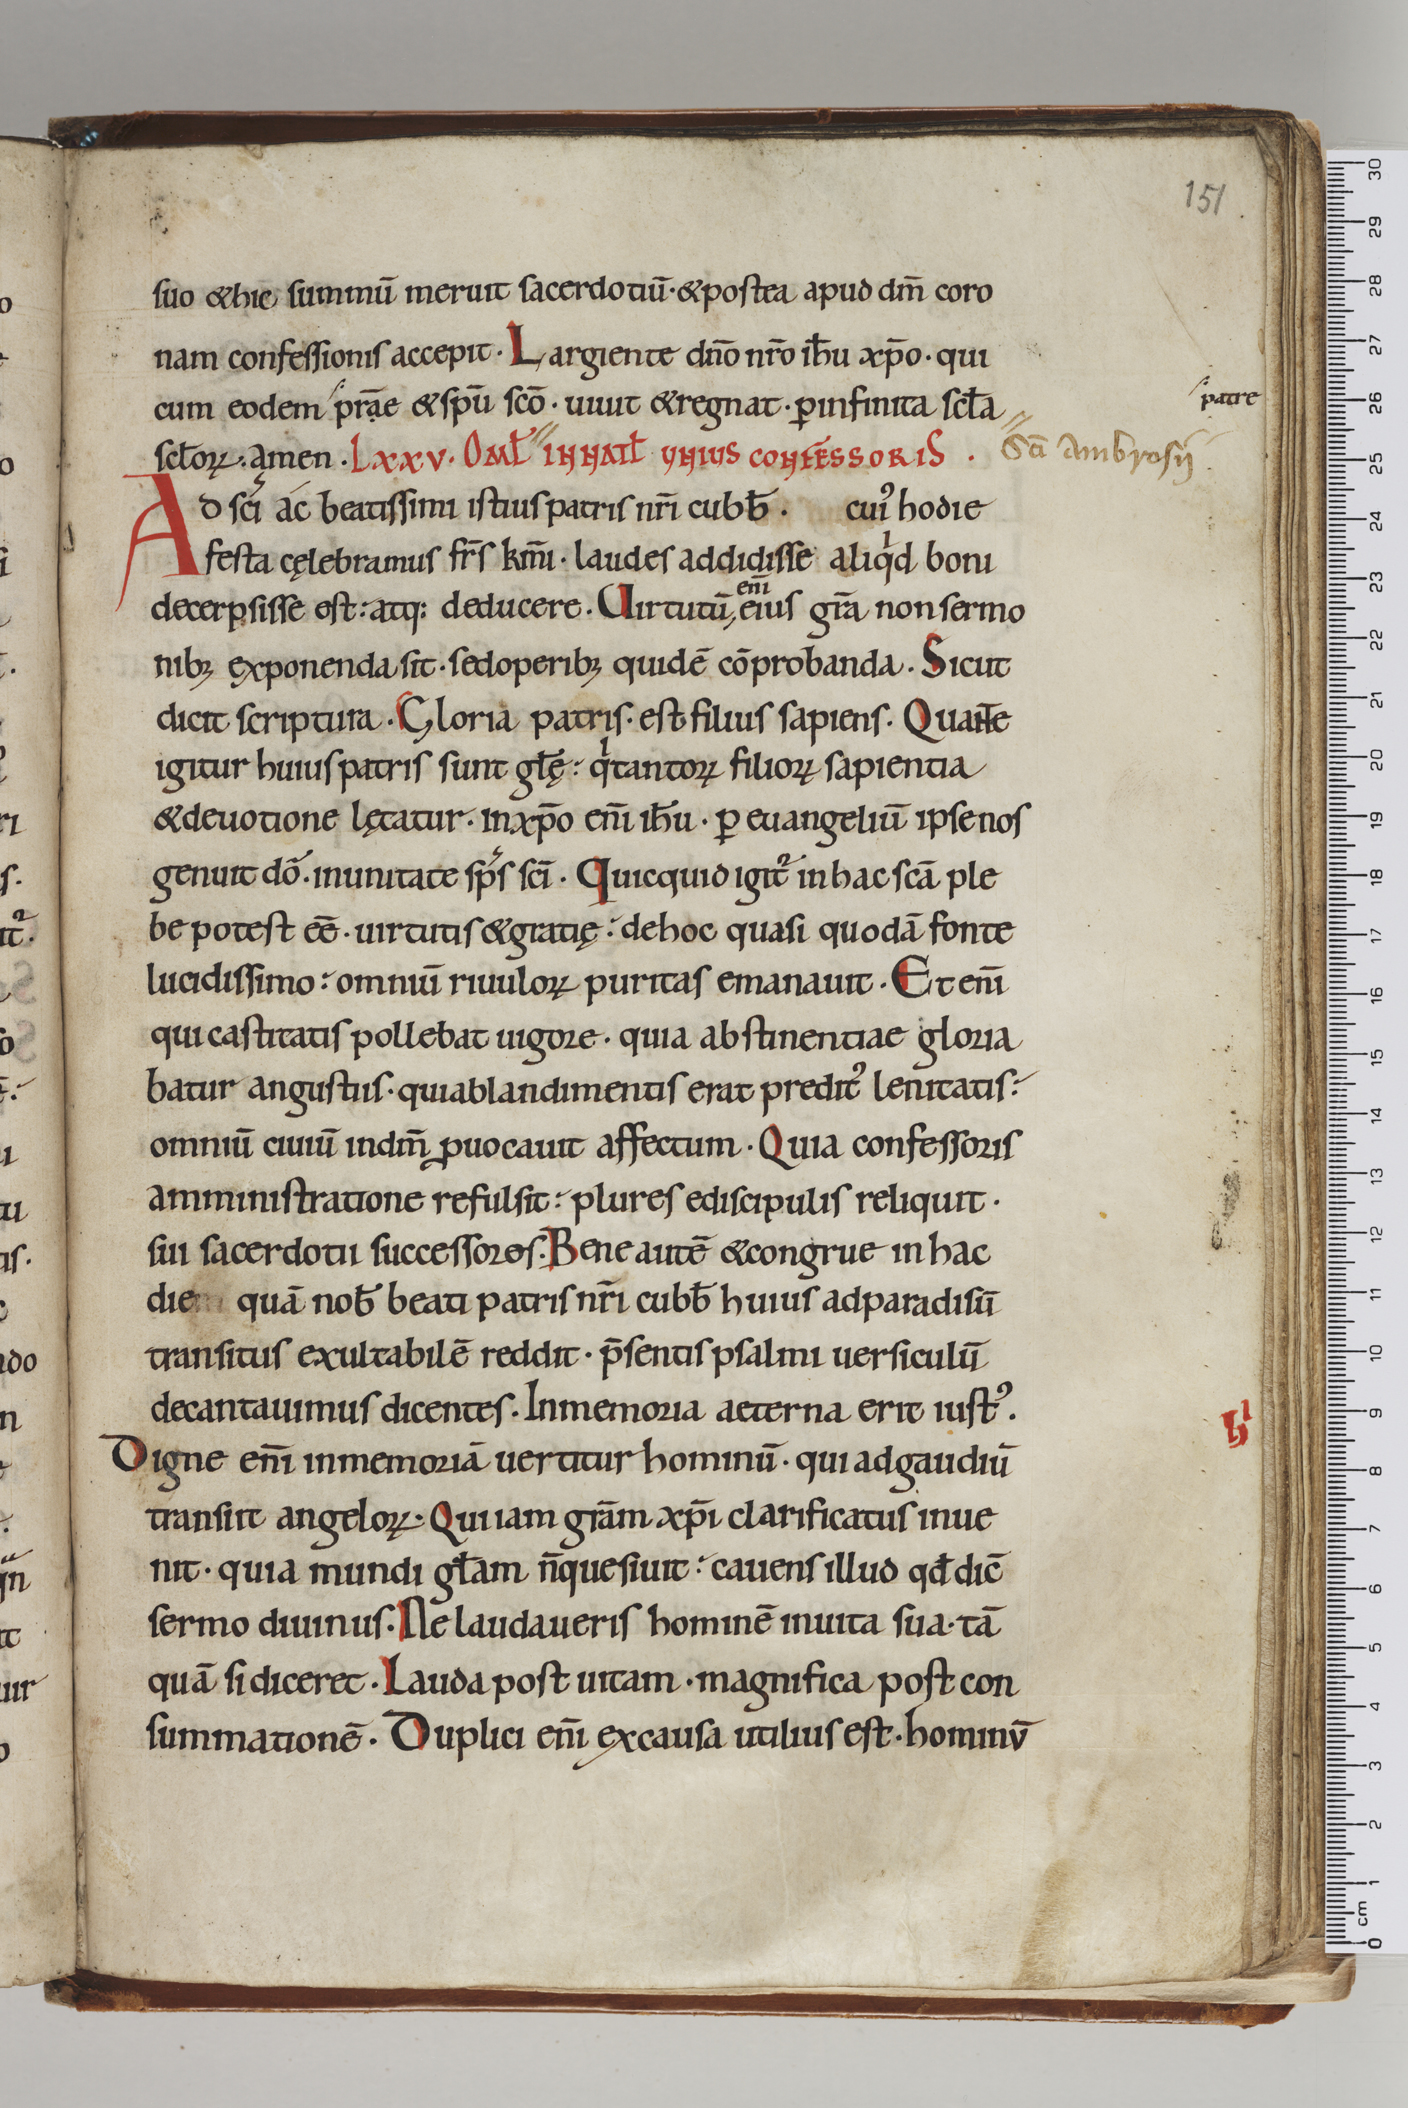 151
suo &hic summū meruit sacerdotiū·&postea apud dm̄ coro
nam confessionis accepit· Largiente dn̄o nr̄o ih̄u xp̄o· qui
cum eodem pr̄ae &spū scō· uiuit &regnat· ꝑinfinita scł̄a
patre
scł̄oꝝ· amen· Lxxv· Oml̄ in nat̄l unius confes̄soris· Sc̄i Ambrosij
Ad sc̄i ac beatissimi istius patris nr̄i cubb̄· cui᷒ hodie
festa cęlebramus fr̄s km̄i· laudes addidisse aliqͥd boni
decerpsisse est: atq: deducere· Uirtutū, eius gr̄a non sermo
em̄
nibꝫ exponenda sit· sed operibꝫ quidē cōprobanda· Sicut
dicit scriptura· Gloria patris· est filius sapiens· Quante
igitur huius patris sunt gl̄ę: qͥ tantoꝝ filioꝝ sapientia
&deuotione lętatur· inxp̄o en̄i ih̄u· ꝑ euangeliū ipse nos
genuit dō· inunitate sp̄s sc̄i· Quicquid igit᷑ in hac scā ple
be potest eē· uirtutis &gratię: dehoc quasi quodā fonte
lucidissimo: omniū riuuloꝝ puritas emanauit· Et en̄i
qui castitatis pollebat uigore· quia abstinentiae gloria
batur angustiis· quiablandimentis erat predit᷒ lenitatis:
omniū ciuiū indm̄ ꝓuocauit affectum· Quia confessoris
amministratione refulsit: plures ediscipulis reliquit·
sui sacerdotii successores· Bene autē &congrue in hac
die quā nob̄ beati patris nr̄i cubb̄ huius adparadisū
transitus exultabilē reddit· p̄sentis psalmi uersiculū
decantauimus dicentes· Inmemoria aeterna erit iust᷒·
Digne en̄i inmemoriā uertitur hominū· qui adgaudiū
transiit angeloꝝ· Qui iam grām xp̄i clarificatus inue
nit· quia mundi gł̄am n̄ quesiuit: cauens illud qđ dic̄
sermo diuinus· Ne laudaueris hominē inuita sua· tā
quā si diceret· Lauda post uitam· magnifica post con
summationē· Duplici en̄i excausa utilius est· hominū